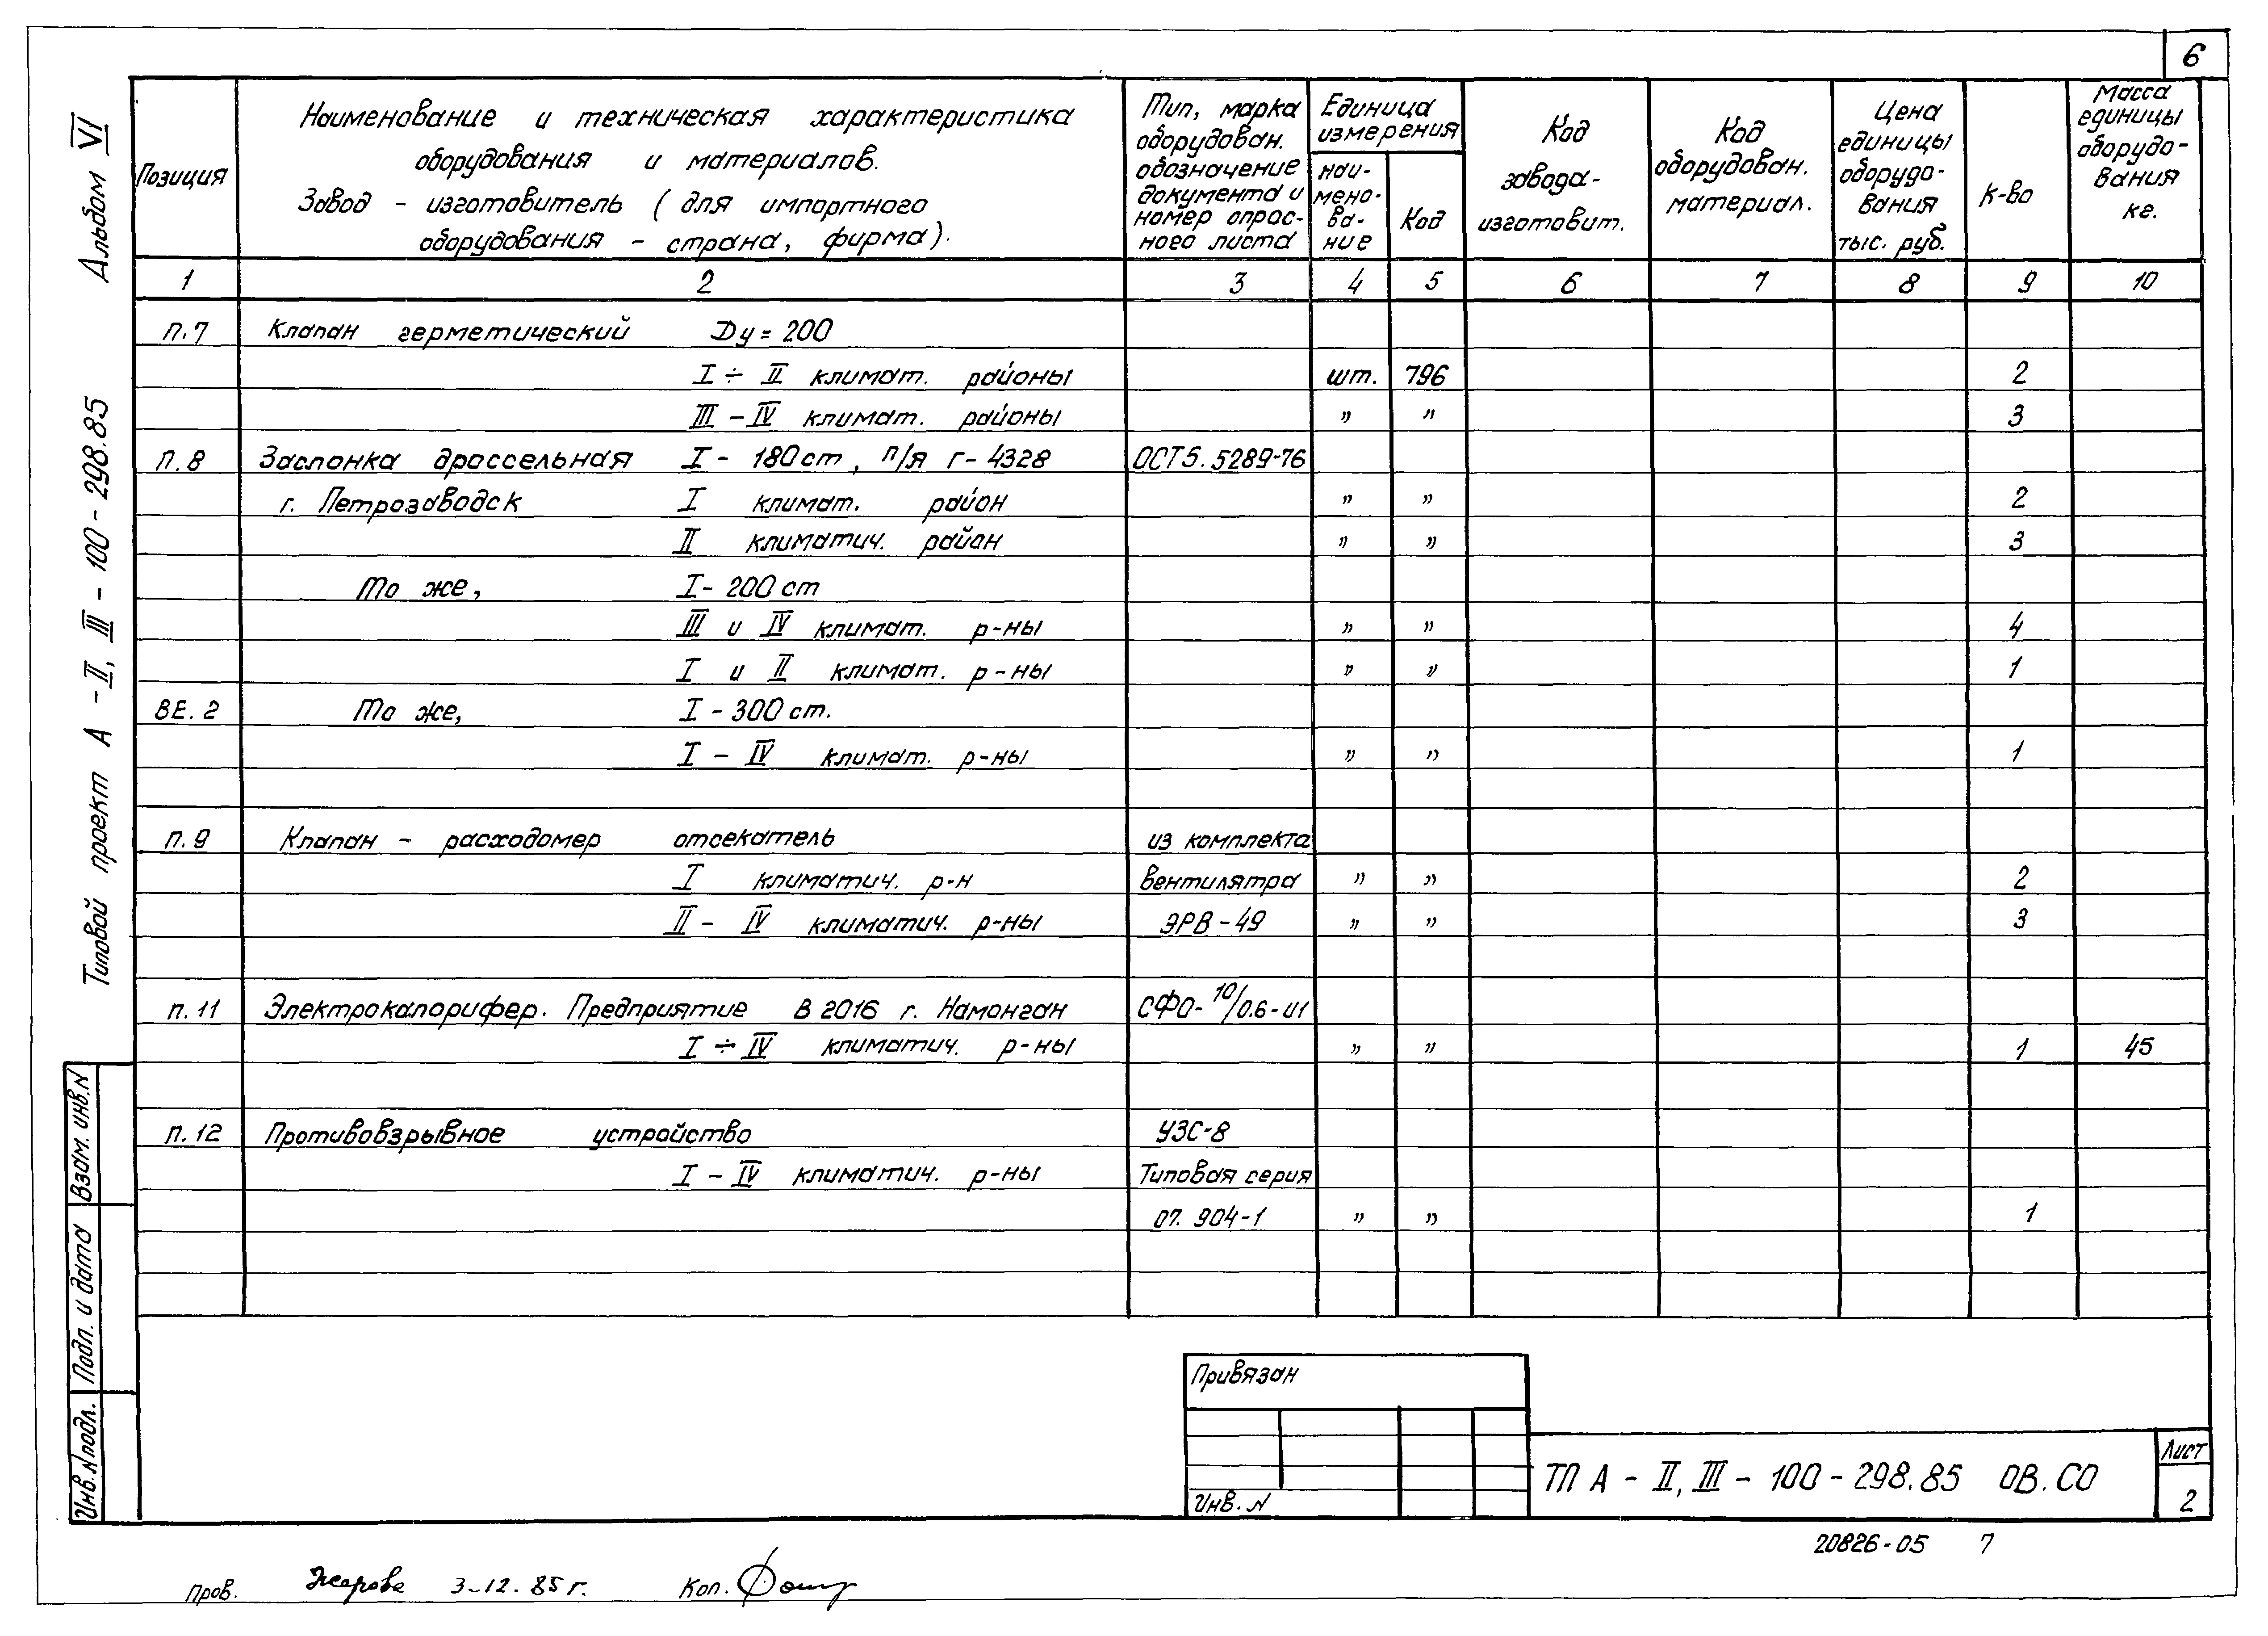 6
Альбом VI
Типовой проект А - II, III - 100 - 298.85
Позиция
Наименование и техническая характеристика
оборудования и материалов.
Завод - изготовитель ( для импортного
оборудования - страна, фирма).
Тип, марка
оборудован.
обозначение
документа и
номер опрос-
ного листа
Единица
измерения
наи-
мено-
ва-
ние
Код
Код
завода-
изготовит.
Код
оборудован.
материал.
Цена
единицы
оборудо-
вания
тыс. руб.
К-во
Масса
единицы
оборудо-
вания
кг.
1 2 3 4 5 6 7 8 9 10
П.7 Клапан герметический Dу = 200
I ÷ II климат. районы шт. 796 2
III - IV климат. районы " " 3
П.8 Заслонка дроссельная I - 180 ст, п/я г-4328 ОСТ5. 5289-76
г. Петрозаводск I климат. район " " 2
II климатич. район " " 3
То же, I - 200 ст
III и IV климат. р-ны " " 4
I и II климат. р-ны " " 1
ВЕ. 2 То же, I - 300 ст.
I - IV климат. р-ны " " 1
П.9 Клапан - расходомер отсекатель из комплекта
I климатич. р-н вентилятра " " 2
II - IV климатич. р-ны ЭРВ - 49 " " 3
П.11 Электрокалорифер. Предприятие В 2016 г. Наманган СФО- 10/0.6 - И1
I ÷ IV климатич. р-ны " " 1 45
П.12 Противовзрывное устройство УЗС-8
I - IV климатич. р-ны Типовая серия
07. 904-1 " " 1
Взам. инв.N
Подп. и дата
Инв.Nподл.
Привязан
Инв. N
ТП А - II, III - 100 - 298.85 ОВ.СО
Лист
2
20826-05 7
Пров. Жарова 3-12. 85 г. Коп.